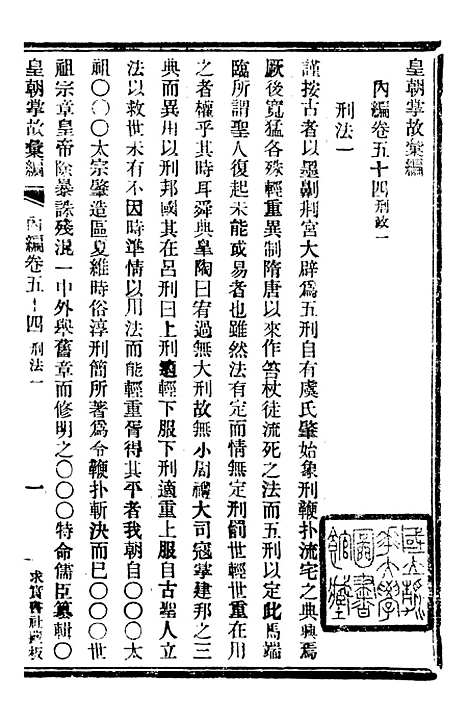 皇朝掌故彙編
內編卷五十四刑政一
刑法一
謹按古者以墨劓剕宮大辟爲五刑自有虞氏肇始象刑鞭扑流宅之典興焉
厥後寬猛各殊輕重異制隋唐以來作笞杖徒流死之法而五刑以定此馬端
臨所謂聖人復起未能或易者也雖然法有定而情無定刑罰世輕世重在用
之者權乎其時耳舜典皐陶曰宥過無大刑故無小周禮大司寇掌建邦之三
典而異用以刑邦國其在呂刑曰上刑適輕下服下刑適重上服自古聖人立
法以救世未有不因時準情以用法而能輕重胥得其平者我朝自〇〇〇太
祖〇〇〇太宗肇造區夏維時俗淳刑簡所著爲令鞭扑斬決而已〇〇〇世
祖宗章皇帝除暴誅殘混一中外與舊章而修明之〇〇〇特命儒臣纂輯〇
皇朝掌故彙編
內編卷五十四
刑法一
一
求實書社藏板
國立北平大學圖書館藏